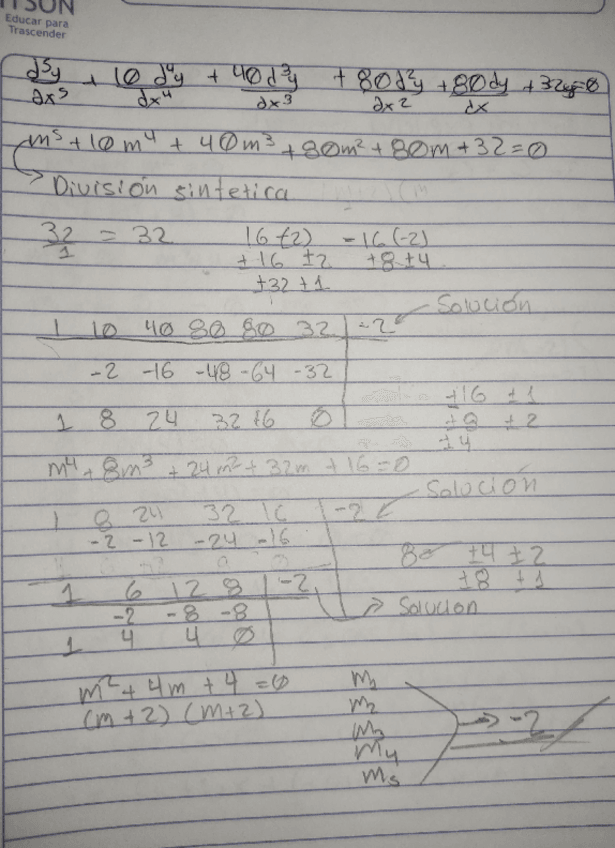 ITSON
Educar para
Trascender
d⁵y/dx⁵ + 10 d⁴y/dx⁴ + 40d³y/dx³ + 80d²y/dx² + 80dy/dx + 32y=0
m⁵ + 10m⁴ + 40m³ + 80m² + 80m + 32 = 0
División sintetica
32/1 = 32 16 (-2) -16 (-2)
±16 ±2 ±8 ±4
±32 ±1
Solución
1 10 40 80 80 32 -2
-2 -16 -48 -64 -32
±16 ±1
1 8 24 32 16 0 ±8 ±2
±4
m⁴ + 8m³ + 24m² + 32m + 16 = 0
Solución
1 8 24 32 16 -2
-2 -12 -24 -16
8 ±4 ±2
1 6 12 8 -2 ±8 ±1
-2 -8 -8 Solucion
1 4 4 0
m² + 4m + 4 = 0 m₁
(m + 2) (m+2) m₂
m₃ -2
m₄
m₅